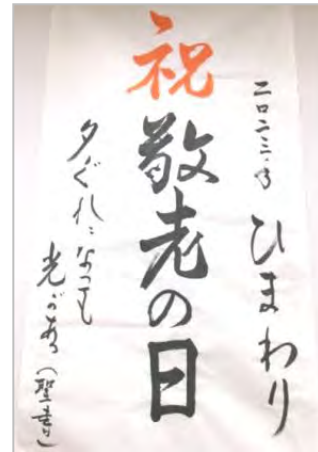 二〇二三・ ひまわり
祝 敬老の日
夕ぐれになっても
光がある(聖書)